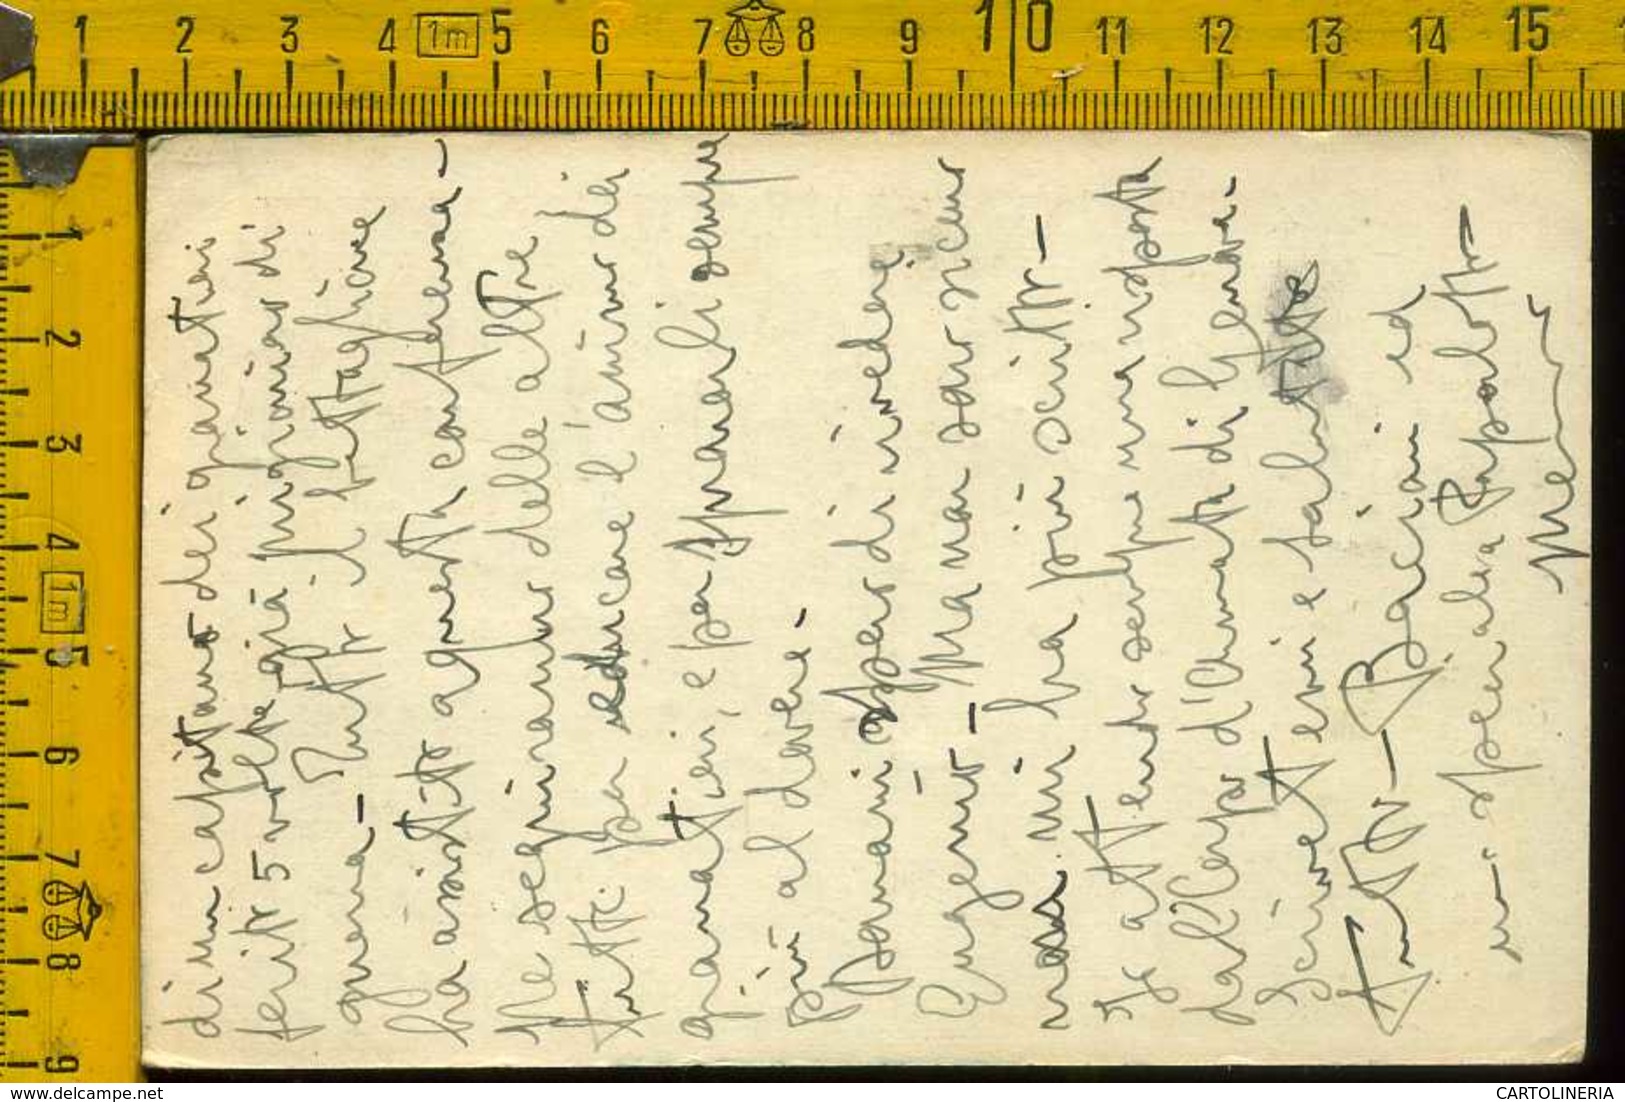 di un capitano dei granatieri
ferito 5 volte già prigioniero di
guerra - Tutto il battaglione
ha assistito a questa conferenza -
Ne seguiranno delle altre
tutti per educare l'animo dei
granatieri, e per spronarli sempre
più al dovere -
Domani spero di vedere
Eugenio - Ma non sono sicuro
non mi ha più scritto -
Io attendo sempre una risposta
dall'Corpo d'Armata di Genova -
Scrivetemi e salutate
Tutti - Bacioni ed
spen alla
1 2 3 4 1m 5 6 7 8 9 10 11 12 13 14 15
1 2 3 4 1m 5 6 7 8 9
www.delcampe.net
CARTOLINERIA